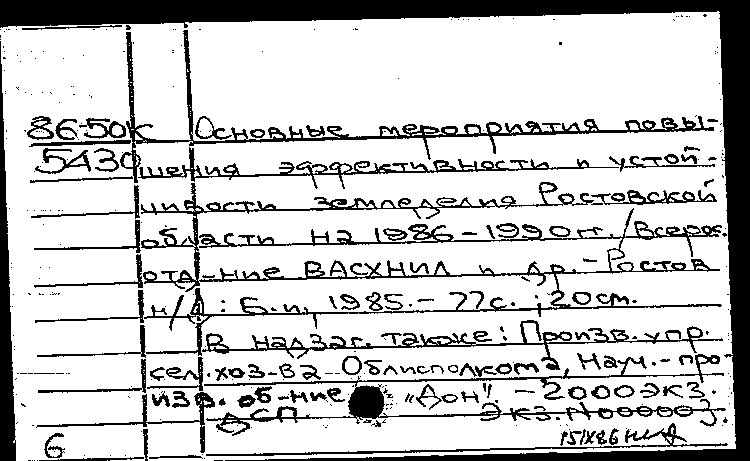 86-50к Основные мероприятия повы-
5430 шения эффективности и устой-
чивости земледелия Ростовской
области на 1986-1990 гг. / Всерос.
отд-ние ВАСХНИЛ и др. - Ростов
н/Д : Б.и., 1985. - 77с. ; 20 см.
В надзаг. также: Произв. упр.
сел. хоз-ва Облисполкома, Науч.-про-
изв. об-ние "Дон". - 2000 экз.
ДСП. Экз. N00003.
6